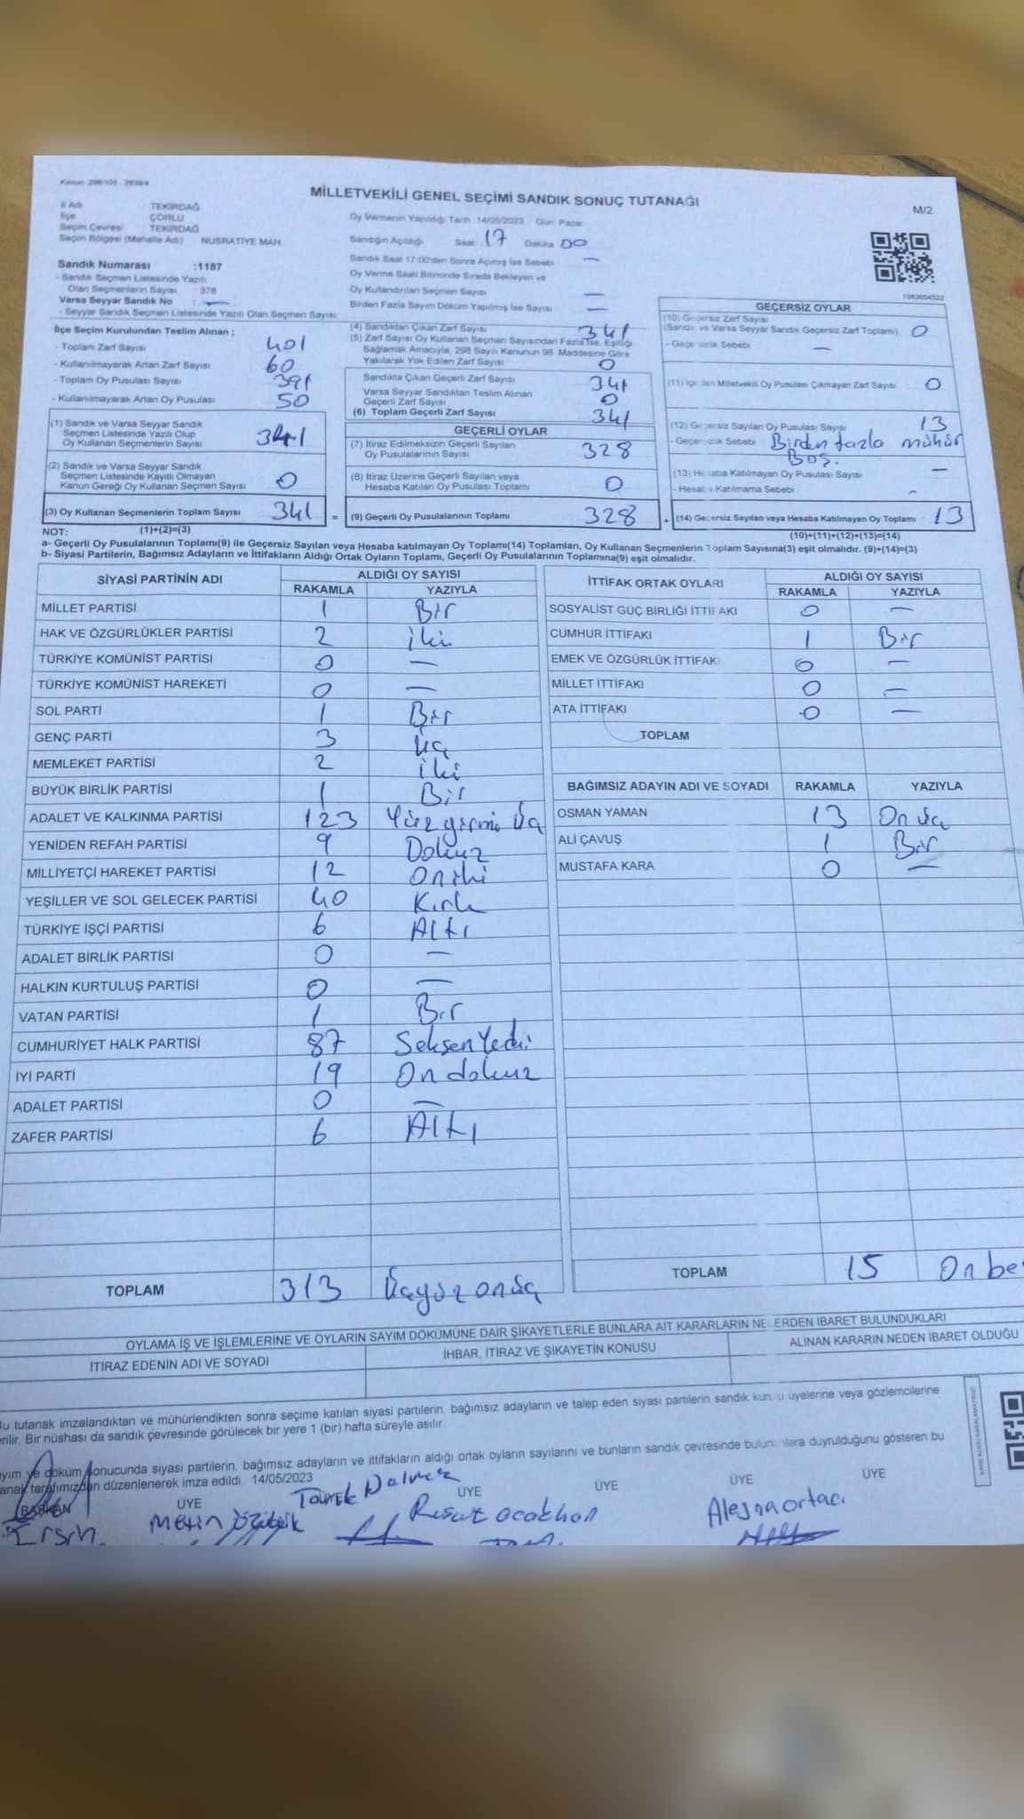 MİLLETVEKİLİ GENEL SEÇİMİ SANDIK SONUÇ TUTANAĞI
M/2
İl Adı TEKİRDAĞ
İlçe ÇORLU
Seçim Çevresi TEKİRDAĞ
Seçim Bölgesi (Mahalle Adı) NUSRATİYE MAH.
Oy Vermenin Yapıldığı Tarih :14/05/2023 Gün: Pazar
Sandığın Açıldığı Saat 17 Dakika 00
Sandık Saat 17:00'den Sonra Açılmış İse Sebebi —
Oy Verme Saati Bitiminde Sırada Bekleyen ve
Oy Kullandırılan Seçmen Sayısı —
Birden Fazla Sayım Döküm Yapılmış İse Sayısı —
Sandık Numarası :1187
- Sandık Seçmen Listesinde Yazılı
Olan Seçmenlerin Sayısı 378
Varsa Seyyar Sandık No : —
- Seyyar Sandık Seçmen Listesinde Yazılı Olan Seçmen Sayısı:
İlçe Seçim Kurulundan Teslim Alınan ;
- Toplam Zarf Sayısı 401
- Kullanılmayarak Artan Zarf Sayısı 60
- Toplam Oy Pusulası Sayısı 391
- Kullanılmayarak Artan Oy Pusulası 50
(1) Sandık ve Varsa Seyyar Sandık
Seçmen Listesinde Yazılı Olup
Oy Kullanan Seçmenlerin Sayısı 341
(2) Sandık ve Varsa Seyyar Sandık
Seçmen Listesinde Kayıtlı Olmayan
Kanun Gereği Oy Kullanan Seçmen Sayısı 0
(3) Oy Kullanan Seçmenlerin Toplam Sayısı 341
(1)+(2)=(3)
(4) Sandıktan Çıkan Zarf Sayısı 341
(5) Zarf Sayısı Oy Kullanan Seçmen Sayısından Fazla İse, Eşitliği
Sağlamak Amacıyla, 298 Sayılı Kanunun 98. Maddesine Göre
Yakılarak Yok Edilen Zarf Sayısı 0
Sandıkta Çıkan Geçerli Zarf Sayısı 341
Varsa Seyyar Sandıktan Teslim Alınan
Geçerli Zarf Sayısı 0
(6) Toplam Geçerli Zarf Sayısı 341
GEÇERLİ OYLAR
(7) İtiraz Edilmeksizin Geçerli Sayılan
Oy Pusulalarının Sayısı 328
(8) İtiraz Üzerine Geçerli Sayılan veya
Hesaba Katılan Oy Pusulası Toplamı 0
= (9) Geçerli Oy Pusulalarının Toplamı 328
GEÇERSİZ OYLAR
(10) Geçersiz Zarf Sayısı
(Sandık ve Varsa Seyyar Sandık Geçersiz Zarf Toplamı) 0
- Geçersizlik Sebebi —
(11) İçinden Milletvekili Oy Pusulası Çıkmayan Zarf Sayısı 0
(12) Geçersiz Sayılan Oy Pusulası Sayısı 13
- Geçersizlik Sebebi Birden fazla mühür
Boş.
(13) Hesaba Katılmayan Oy Pusulası Sayısı —
- Hesaba Katılmama Sebebi -
+ (14) Geçersiz Sayılan veya Hesaba Katılmayan Oy Toplamı 13
(10)+(11)+(12)+(13)=(14)
NOT:
a- Geçerli Oy Pusulalarının Toplamı(9) ile Geçersiz Sayılan veya Hesaba katılmayan Oy Toplamı(14) Toplamları, Oy Kullanan Seçmenlerin Toplam Sayısına(3) eşit olmalıdır. (9)+(14)=(3)
b- Siyasi Partilerin, Bağımsız Adayların ve İttifakların Aldığı Ortak Oyların Toplamı, Geçerli Oy Pusulalarının Toplamına(9) eşit olmalıdır.
SİYASİ PARTİNİN ADI ALDIĞI OY SAYISI
RAKAMLA YAZIYLA
MİLLET PARTİSİ 1 Bir
HAK VE ÖZGÜRLÜKLER PARTİSİ 2 iki
TÜRKİYE KOMÜNİST PARTİSİ 0 —
TÜRKİYE KOMÜNİST HAREKETİ 0 —
SOL PARTİ 1 Bir
GENÇ PARTİ 3 üç
MEMLEKET PARTİSİ 2 iki
BÜYÜK BİRLİK PARTİSİ 1 Bir
ADALET VE KALKINMA PARTİSİ 123 Yüz yirmi Üç
YENİDEN REFAH PARTİSİ 9 Dokuz
MİLLİYETÇİ HAREKET PARTİSİ 12 Oniki
YEŞİLLER VE SOL GELECEK PARTİSİ 40 Kırk
TÜRKİYE İŞÇİ PARTİSİ 6 Altı
ADALET BİRLİK PARTİSİ 0 —
HALKIN KURTULUŞ PARTİSİ 0 —
VATAN PARTİSİ 1 Bir
CUMHURİYET HALK PARTİSİ 87 Seksen Yedi
İYİ PARTİ 19 On dokuz
ADALET PARTİSİ 0 —
ZAFER PARTİSİ 6 Altı
TOPLAM 313 Üçyüz onüç
İTTİFAK ORTAK OYLARI ALDIĞI OY SAYISI
RAKAMLA YAZIYLA
SOSYALİST GÜÇ BİRLİĞİ İTTİFAKI 0 —
CUMHUR İTTİFAKI 1 Bir
EMEK VE ÖZGÜRLÜK İTTİFAKI 0 —
MİLLET İTTİFAKI 0 —
ATA İTTİFAKI 0 —
TOPLAM
BAĞIMSIZ ADAYIN ADI VE SOYADI RAKAMLA YAZIYLA
OSMAN YAMAN 13 On üç
ALİ ÇAVUŞ 1 Bir
MUSTAFA KARA 0 —
TOPLAM 15 On be
OYLAMA İŞ VE İŞLEMLERİNE VE OYLARIN SAYIM DÖKÜMÜNE DAİR ŞİKAYETLERLE BUNLARA AİT KARARLARIN NELERDEN İBARET BULUNDUKLARI
İTİRAZ EDENİN ADI VE SOYADI İHBAR, İTİRAZ VE ŞİKAYETİN KONUSU ALINAN KARARIN NEDEN İBARET OLDUĞU
Bu tutanak imzalandıktan ve mühürlendikten sonra seçime katılan siyasi partilerin, bağımsız adayların ve talep eden siyasi partilerin sandık kurulu üyelerine veya gözlemcilerine
erilir. Bir nüshası da sandık çevresinde görülecek bir yere 1 (bir) hafta süreyle asılır.
ayım ve döküm sonucunda siyasi partilerin, bağımsız adayların ve ittifakların aldığı ortak oyların sayılarını ve bunların sandık çevresinde bulunanlara duyrulduğunu gösteren bu
anak tarafımızdan düzenlenerek imza edildi. 14/05/2023
BAŞKAN ÜYE ÜYE ÜYE ÜYE ÜYE
Ersin Metin
Resut ocakhan